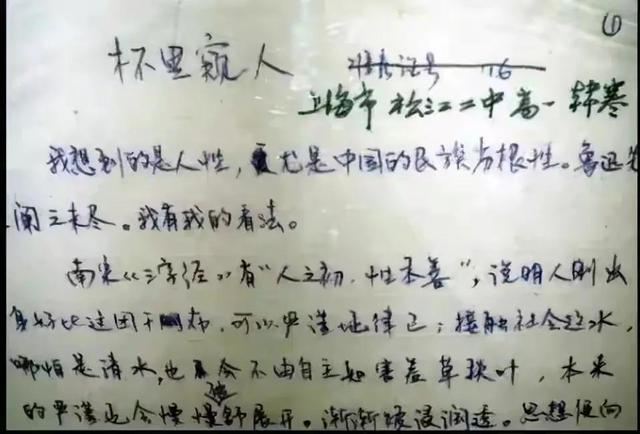 ①
杯里窥人 准考证号 16
上海市松江二中高一韩寒
我想到的是人性,尤是中国的民族劣根性。鲁迅先
阐之未尽。我有我的看法。
南宋《三字经》有“人之初,性本善”,说明人刚出
身好比这团干布,可以严谨地律已;接触社会这水,
哪怕是清水,也会不由自主如害羞草铁叶,本来
的严谨也会慢慢地舒展开。渐渐被浸润透。思想便向